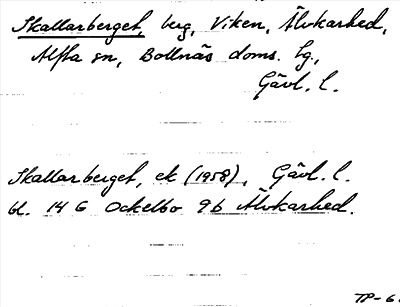 Skallarberget, berg, Viken, Älvkarhed,
Alfta sn, Bollnäs doms. hg.,
Gävl. l.
Skallarberget, ek (1958), Gävl. l.
bl. 14 G Ockelbo 9b Älvkarhed.
TP-6